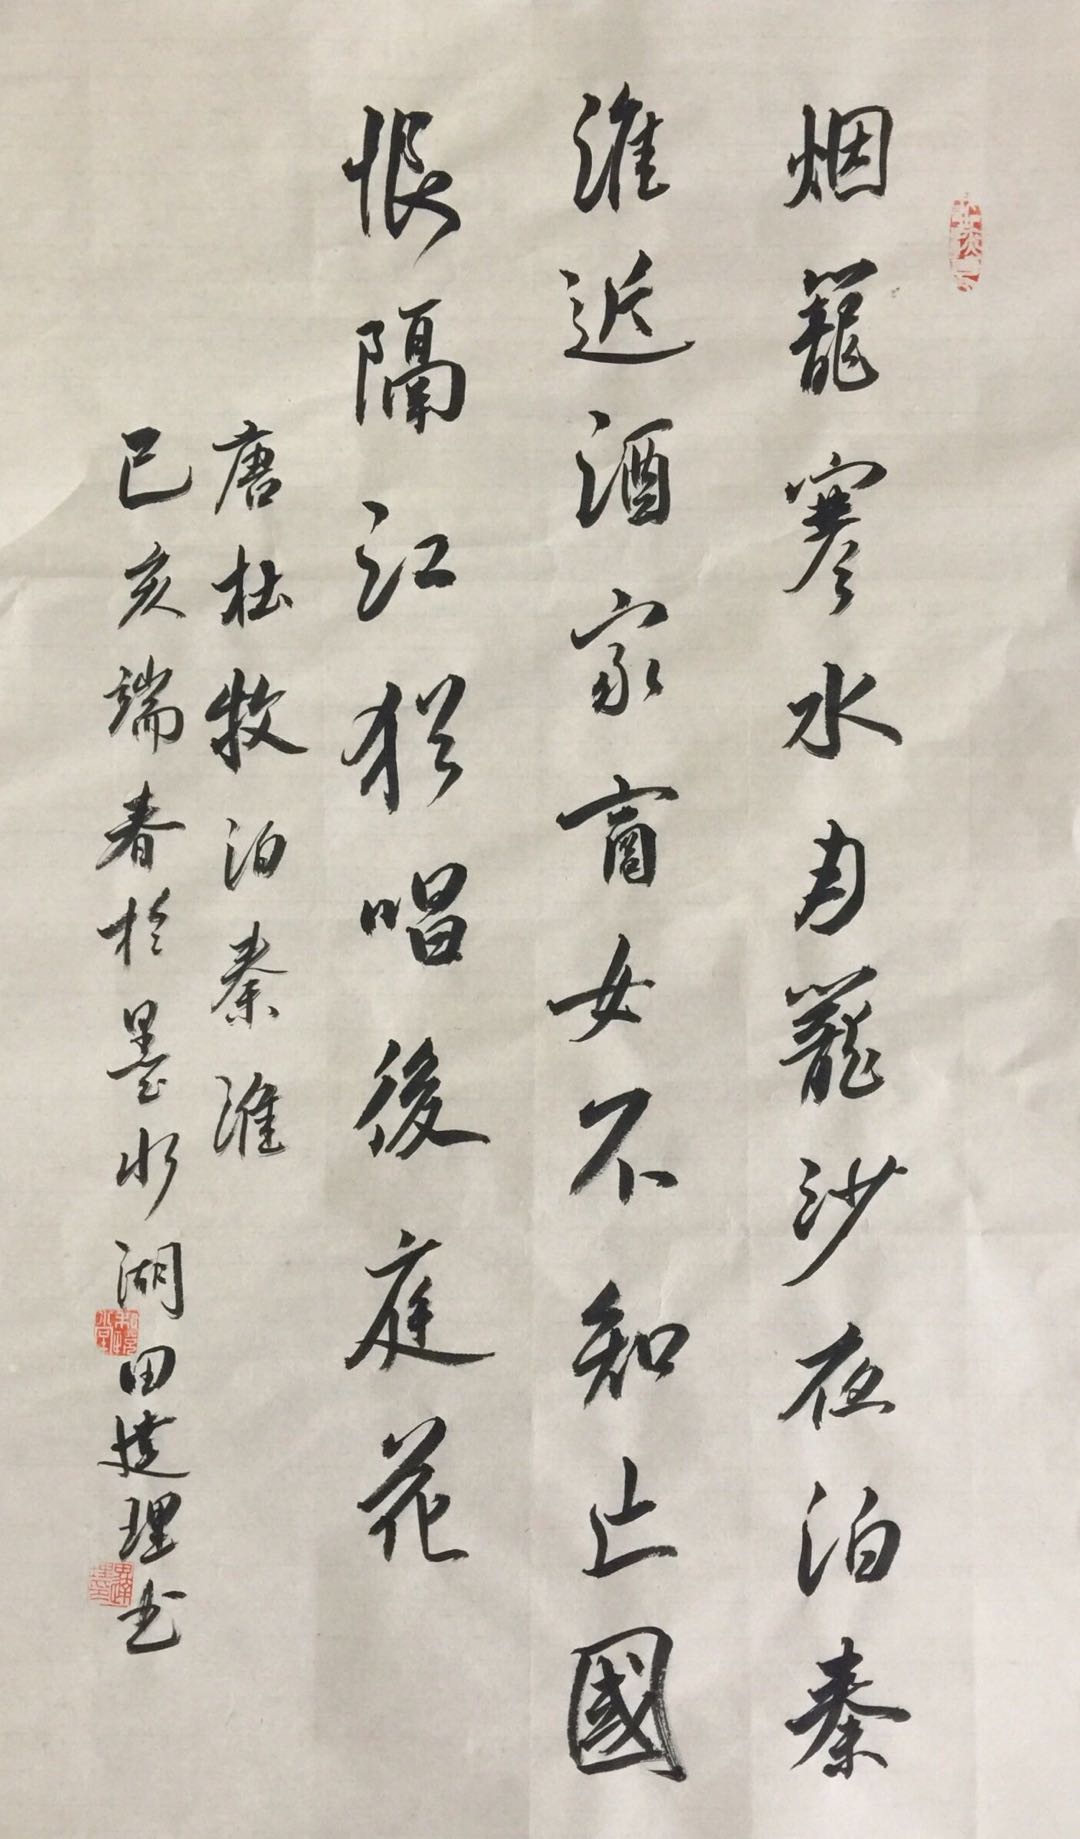 烟籠寒水月籠沙夜泊秦
淮近酒家商女不知亡國
恨隔江犹唱後庭花
唐杜牧泊秦淮
己亥端春於墨水湖田達理书